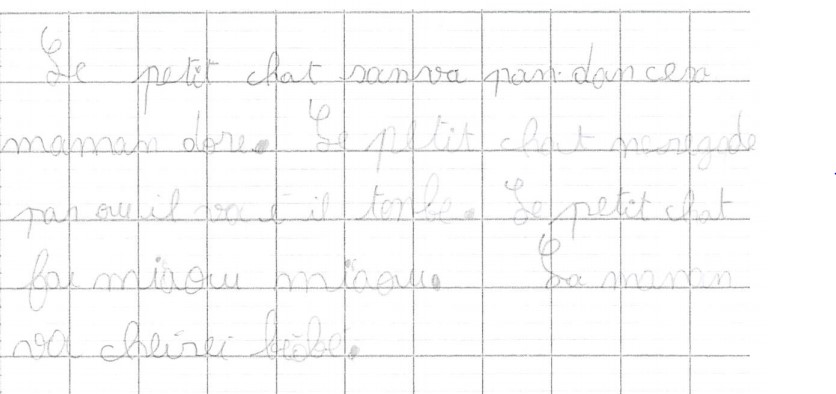 Le petit chat sanva pan dan cesa
maman dore. Le petit chat neregade
pas ou il va é il tonbe. Le petit chat
fai miaou miaou. La maman
va cheirei bébé.